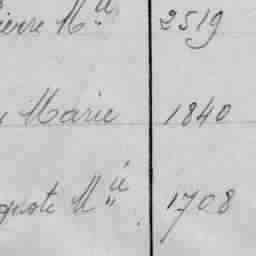 ierre M.ie 2519
Marie 1840
quote M.ie 1708